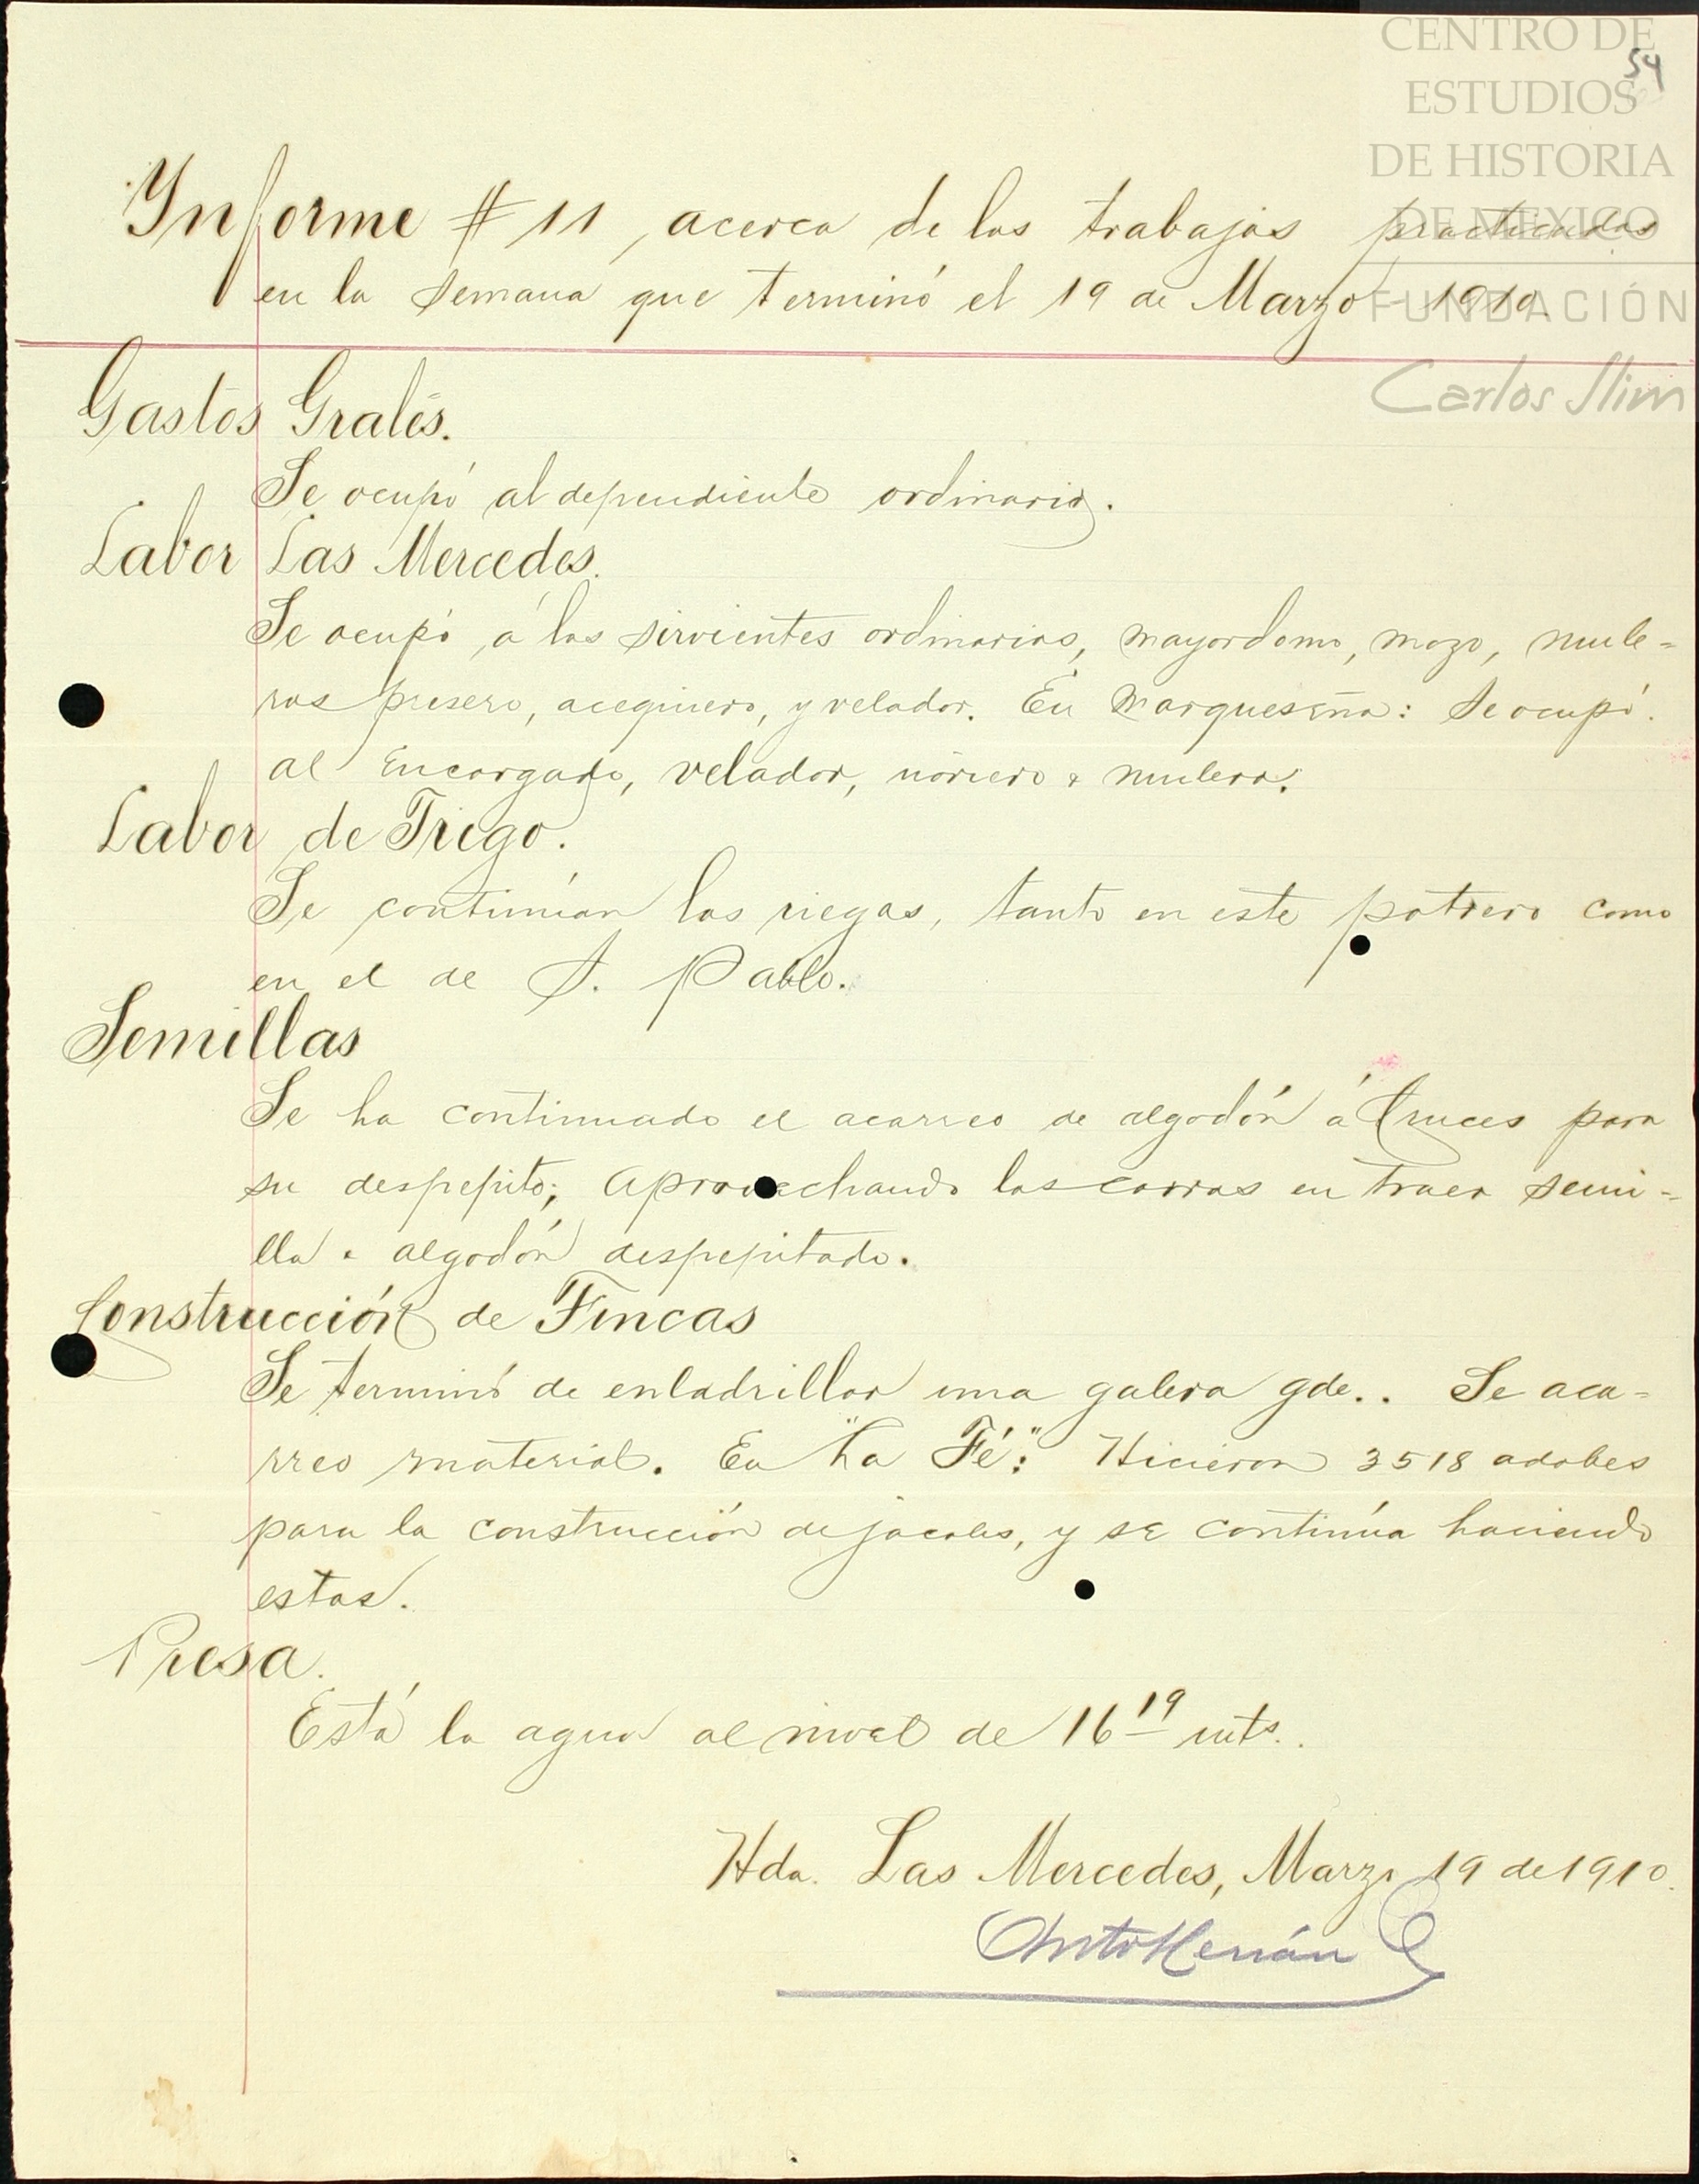 CENTRO DE
ESTUDIOS
DE HISTORIA
DE MÉXICO
FUNDACIÓN
Carlos Slim
54
Informe # 11, acerca de los trabajos practicados
en la semana que terminó el 19 de Marzo - 1910.
Gastos Grales.
Se ocupó al dependiente ordinario.
Labor Las Mercedes.
Se ocupó á los sirvientes ordinarios, mayordomo, mozo, mule=
ros presero, acequiero, y velador. En Marqueseña: Se ocupó.
al Encargado, velador, noriero & mulero.
Labor de Trigo.
Se continúan los riegos, tanto en este potrero como
en el de S. Pablo.
Semillas
Se ha continuado el acarreo de algodón á Cruces para
su despepito; aprovechando los carros en traer semi=
lla & algodón despepitado.
Construcción de Fincas
Se terminó de enladrillar una galera gde.. Se aca=
rreo material. En "La Fé": Hicieron 3518 adobes
para la construcción de jacales, y se continúa haciendo
estos.
Presa.
Está la agua al nivel de 16 19 mts..
Hda. Las Mercedes, Marzo 19 de 1910.
Anto Herrán